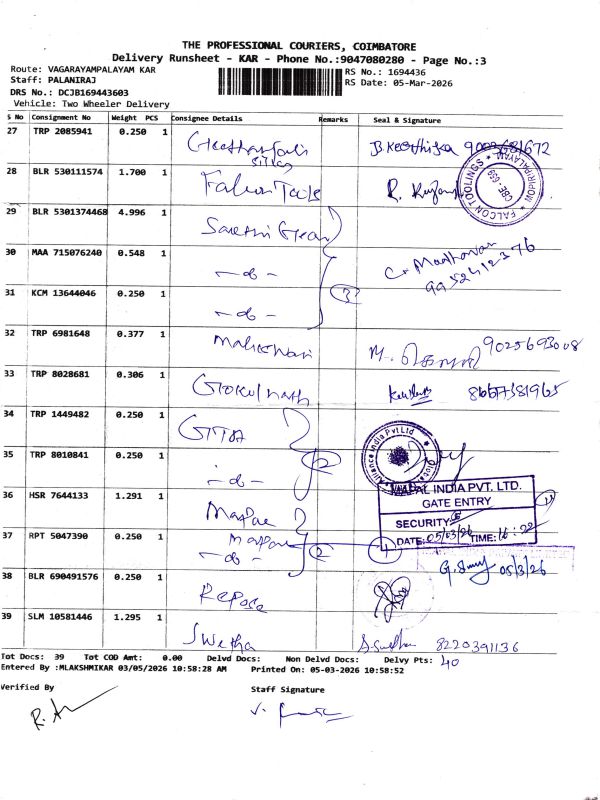 THE PROFESSIONAL COURIERS, COIMBATORE
Delivery Runsheet - KAR - Phone No.:9047080280 - Page No.:3
Route: VAGARAYAMPALAYAM KAR
RS No.: 1694436
Staff: PALANIRAJ
RS Date: 05-Mar-2026
DRS No.: DCJB169443603
Vehicle: Two Wheeler Delivery
S No Consignment No Weight PCS Consignee Details Remarks Seal & Signature
27 TRP 2085941 0.250 1
28 BLR 530111574 1.700 1 Falcon Tools
FALCON TOOLINGS
CBE - 659
29 BLR 5301374468 4.996 1
30 MAA 715076240 0.548 1 -do- C. Madhavan
9952412376
31 KCM 13644046 0.250 1 -do- 3
32 TRP 6981648 0.377 1 Maheswari 9025693008
33 TRP 8028681 0.306 1 Gokulnath 8667381965
34 TRP 1449482 0.250 1
35 TRP 8010841 0.250 1 -do- 2
Alliance India Pvt Ltd
36 HSR 7644133 1.291 1 Mapae
INDIA PVT. LTD.
GATE ENTRY
SECURITY:
DATE: 05/03/26 TIME: 16:22
37 RPT 5047390 0.250 1 Mapae
-do- 2
38 BLR 690491576 0.250 1 Repose 05/3/26
39 SLM 10581446 1.295 1 Swetha 8220391136
Tot Docs: 39 Tot COD Amt: 0.00 Delvd Docs: Non Delvd Docs: Delvy Pts: 40
Entered By :MLAKSHMIKAR 03/05/2026 10:58:28 AM Printed On: 05-03-2026 10:58:52
Verified By Staff Signature